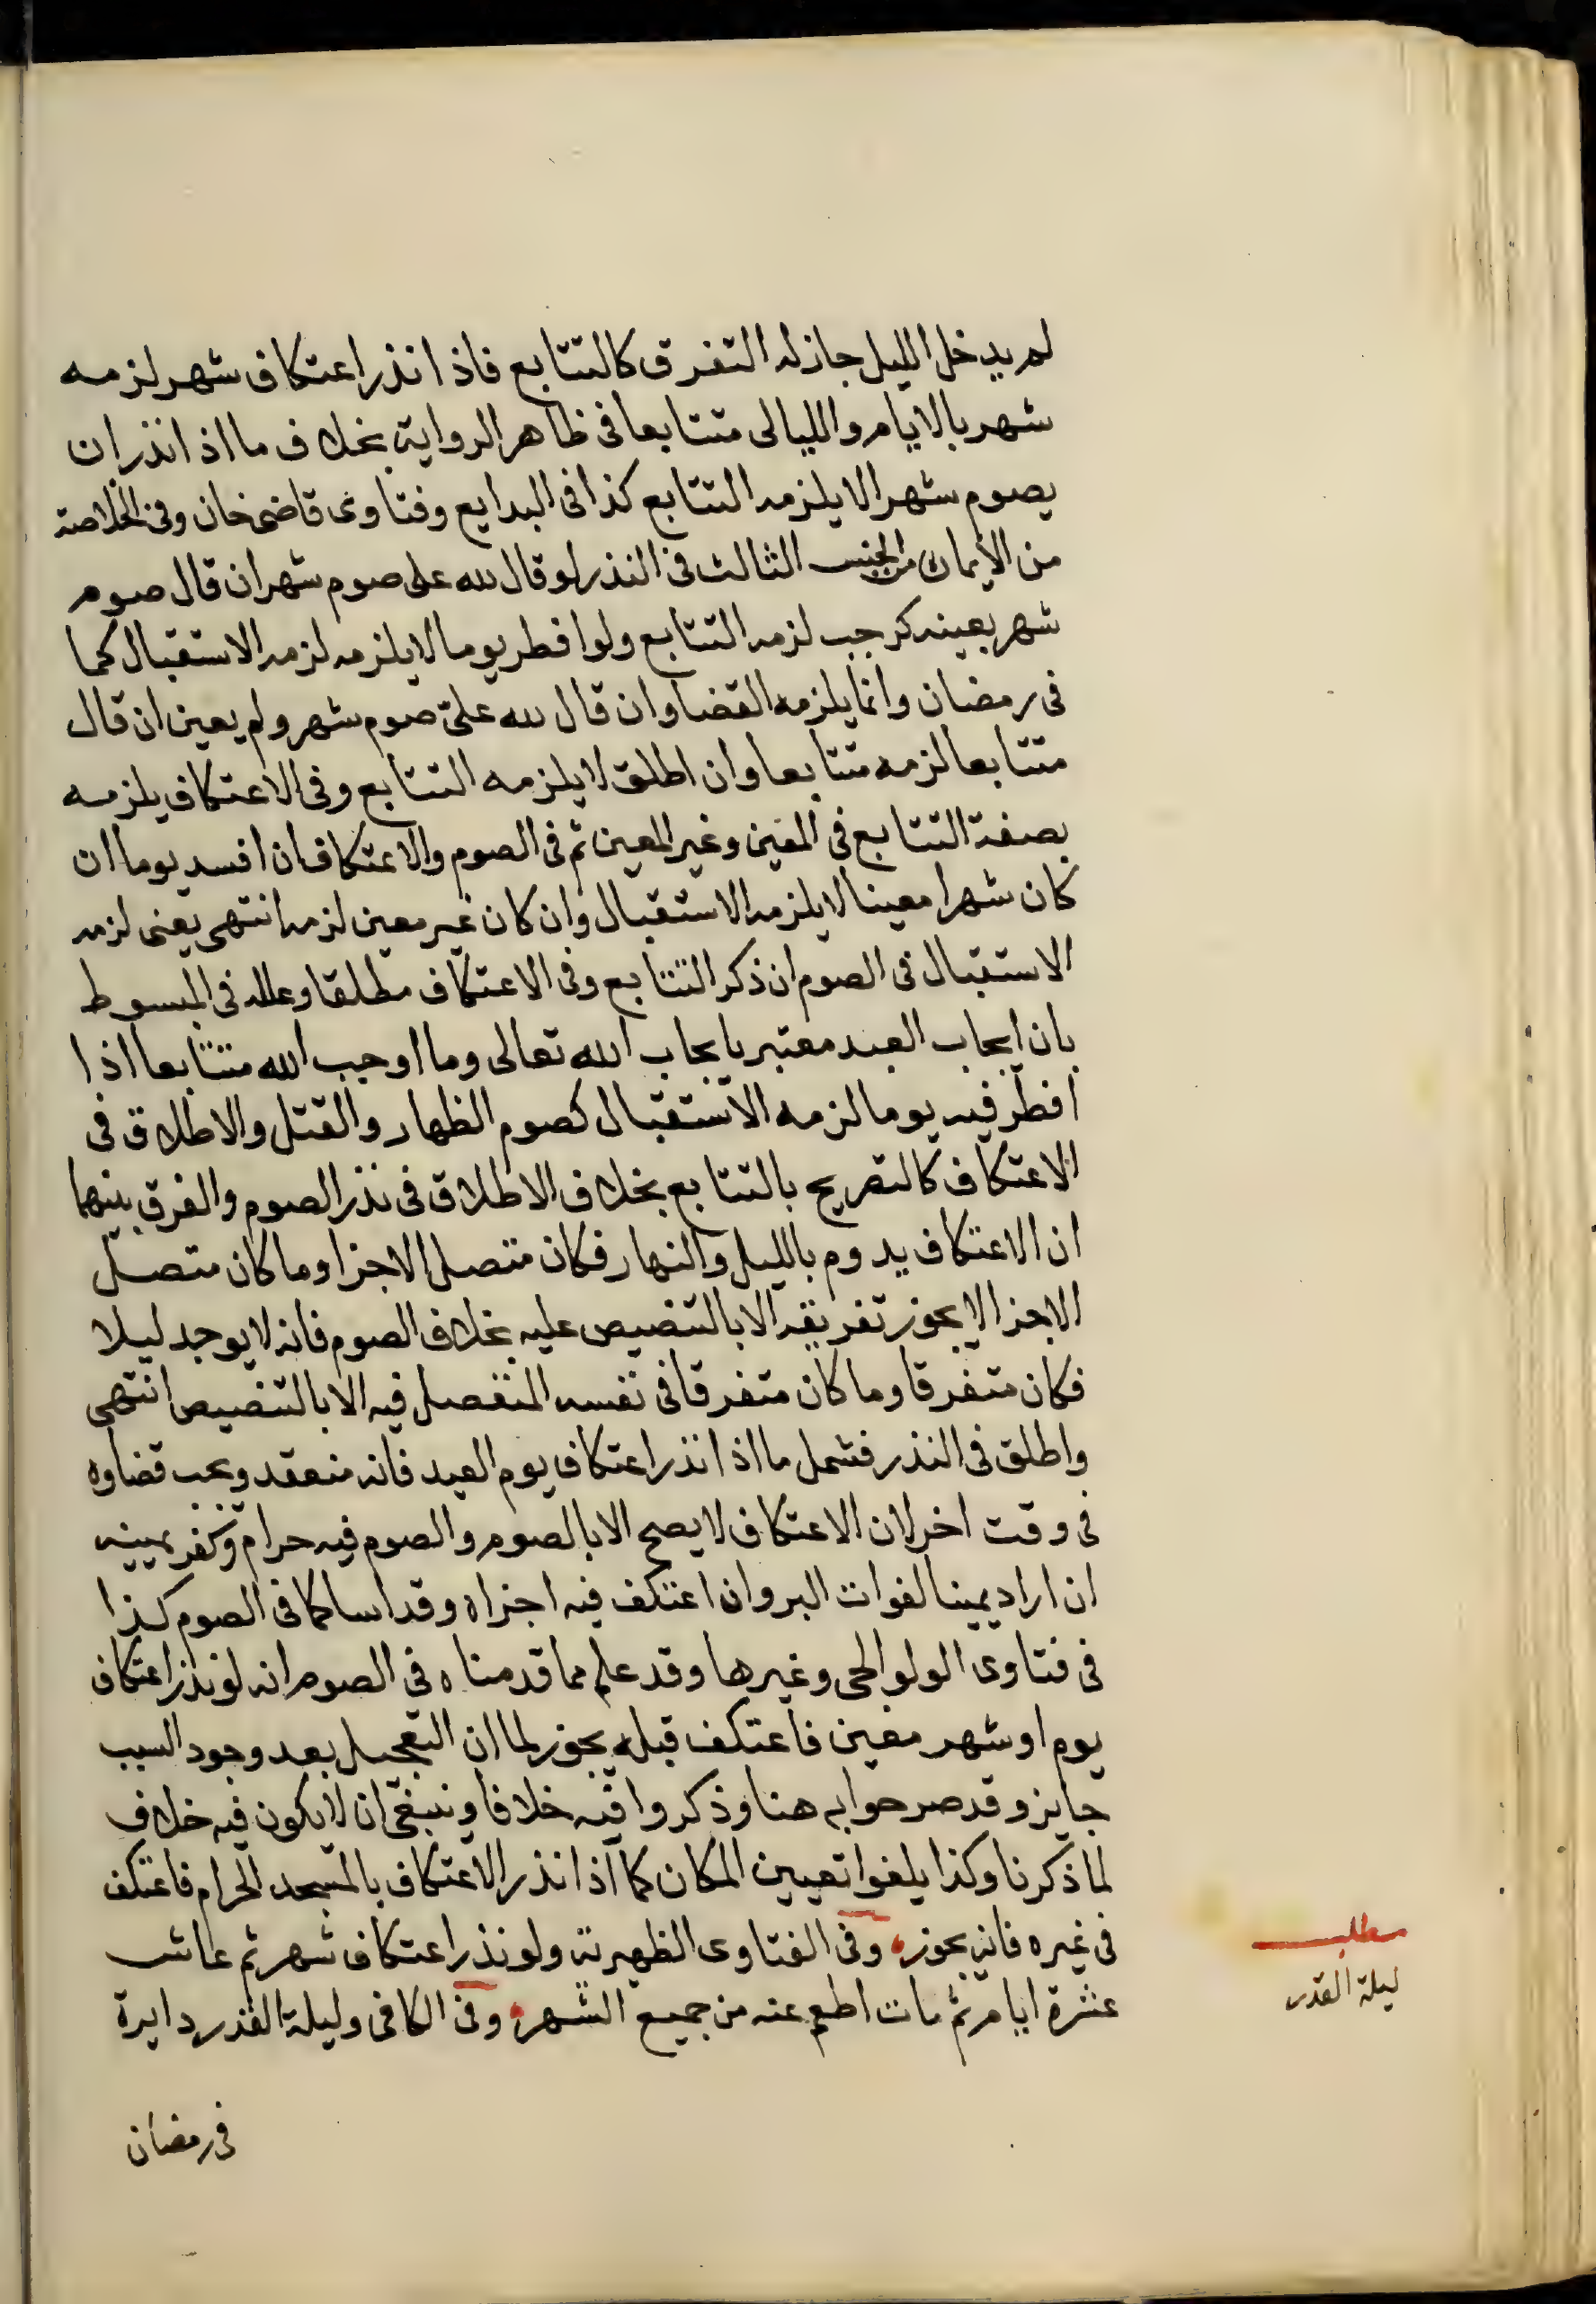 لم يدخل الليل جاز له التفرق كالتتابع فاذا نذر اعتكاف شهر لزمه
شهر بالايام والليالى متتابعا فى ظاهر الرواية بخلاف ما اذا نذر ان
يصوم شهرا لا يلزمه التتابع كذا فى البدايع وفتاوى قاضى خان وفى الخلاصة
من الأيمان من الجنس الثالث فى النذر لو قال لله على صوم شهر ان قال صوم
شهر بعينه كرجب لزمه التتابع ولو افطر يوما لا يلزمه لزمه الاستقبال كما
فى رمضان وانما يلزمه القضا وان قال لله علىّ صوم شهر ولم يعين ان قال
متتابعا لزمه متتابعا وان اطلق لا يلزمه التتابع وفى الاعتكاف يلزمه
بصفة التتابع فى المعين وغير المعين ثم فى الصوم والاعتكاف ان افسد يوما ان
كان شهرا معينا لا يلزمه الاستقبال وان كان غير معين لزمه انتهى يعنى لزمه
الاستقبال فى الصوم ان ذكر التتابع وفى الاعتكاف مطلقا وعلله فى المبسوط
بان ايجاب العبد معتبر بايجاب الله تعالى وما اوجب الله متتابعا اذا
افطر فيه يوما لزمه الاستقبال كصوم الظهار والقتل والاطلاق فى
الاعتكاف كالتصريح بالتتابع بخلاف الاطلاق فى نذر الصوم والفرق بينهما
ان الاعتكاف يدوم بالليل والنهار فكان متصل الاجزا وما كان متصل
الاجزا لا يجوز تفريقه الا بالتنصيص عليه بخلاف الصوم فانه لا يوجد ليلا
فكان متفرقا وما كان متفرقا فى نفسه المنفصل فيه الا بالتنصيص انتهى
واطلق فى النذر فشمل ما اذا نذر اعتكاف يوم العيد فانه منعقد ويجب قضاوه
فى وقت اخر لان الاعتكاف لا يصح الا بالصوم والصوم فيه حرام وكفر يمينه
ان اراد يمينا لفوات البر وان اعتكف فيه اجزاه وقد اسا كما فى الصوم كذا
فى فتاوى الولوالجى وغيرها وقد علم مما قدمناه فى الصوم انه لو نذر اعتكاف
يوم او شهر معين فاعتكف قبله يجوز لما ان التعجيل بعد وجود السبب
جايز وقد صرحوا به هنا وذكروا فيه خلافا وينبغى ان لا يكون فيه خلاف
لما ذكرنا وكذا يلغوا تعيين المكان كما اذا نذر الاعتكاف بالمسجد الحرام فاعتكف
فى غيره فانه يجوز وفى الفتاوى الظهيرية ولو نذر اعتكاف شهر ثم عاش
عشرة ايام ثم مات اطعم عنه من جميع الشهر وفى الكافى وليلة القدر دايرة
فى رمضان
مطلب
ليلة القدر